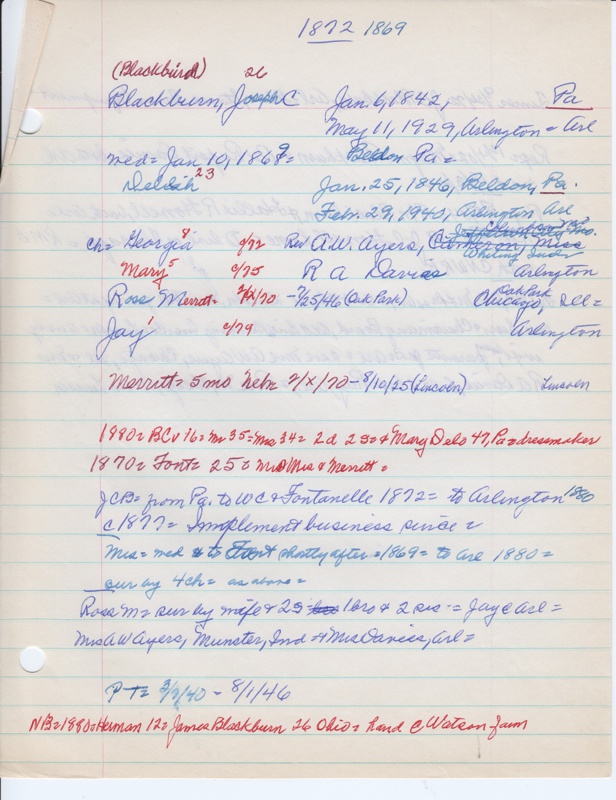 1872 1869
(Blackburn) 26
Blackburn, Joseph C Jan. 6, 1842, Pa
May 11, 1929, Arlington = Arl
med = Jan 10, 1869 = Beldon Pa =
23
Jan. 25, 1846, Beldon, Pa.
Febr. 29, 1940, Arlington Arl
ch = Georgia 8 c/72 Rev A.W. Ayers,
Whiting Ind
Mary 5 c/75 R A Davies Arlington
Rose Merritt = 2/X/70 - 7/25/46 (Oak Park) Oak Park Chicago, Ill =
Jay 1 c/79 Arlington
Merritt = 5 mo Nebr 2/X/70 - 8/10/25 (Lincoln) Lincoln
1880 = BCv 16 = Mr 35 = Mrs 34 = 2 d 2 s = & Mary Delo 47, Pa = dressmaker
1870 = Font = 25 = Mr & Mrs & Merritt =
JCB = from Pa. to WC & Fontanelle 1872 = to Arlington 1880
c 1877 = Implement business since =
Mrs = med & to Font shortly after = 1869 = to Arl 1880 =
sur by 4 ch = as above =
Rose M = sur by wife & 2 s = 1 bro & 2 sis = Jay c Arl =
Mrs A W Ayers, Munster, Ind = & Mrs Davies, Arl =
PT = 3/7/40 - 8/1/46
NB = 1880 = Herman 12 = James Blackburn 26 Ohio = hand c Watson farm